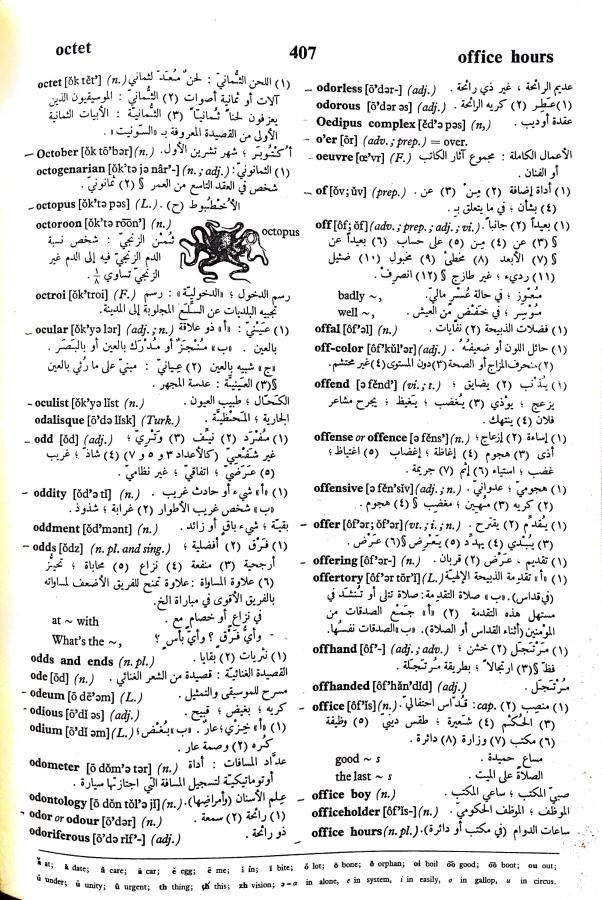 octet
407
office hours
octet [ŏk tĕt'] (n.) (١) اللحن الثُّماني : لحنٌ مُعَدّ لثماني
آلات أو ثمانية أصوات (٢) الثُّماني : الموسيقيون الذين
يعزفون لحناً ثمانيّاً (٣) الثُّمانية : الأبيات الثمانية
الأولى من القصيدة المعروفة بـ «السّونيت» .
October [ŏk tō'bər] (n.) أكتُوبَر ؛ شهر تشرين الأول .
octogenarian [ŏk'tə jə nâr'-] (n.; adj.) (١) الثمانُونيّ :
شخص في العقد التاسع من العمر § (٢) ثمانُونيّ .
octopus [ŏk'tə pəs] (L.) الأُخطُبوط (ح) .
octoroon [ŏk'tə rōōn'] (n.)
ثُمْن الزنجيّ : شخص نسبة
الدم الزنجيّ فيه إلى الدم غير
الزنجيّ تساوي ⅛ .
octopus
octroi [ŏk'troi] (F.) رسم الدخول ؛ «الدخوليّة» : رسم
تجبيه البلديات عن السلع المجلوبة إلى المدينة .
ocular [ŏk'yə lər] (adj.; n.) (١) عَيْنيّ : «أ» ذو علاقة
بالعين . «ب» مُنْجَز أو مُدرَك بالعين أو بالبصر .
«ج» شبيه بالعين (٢) عِيانيّ : مبنيّ على ما رُئي بالعين
§(٣) العَيْنيّة : عدسة المجهر .
oculist [ŏk'yə lĭst] (n.) الكحّال ؛ طبيب العيون .
odalisque [ō'də lĭsk] (Turk.) الجارية ؛ المَحْظيّة .
odd [ŏd] (adj.) (١) مُفْرَد (٢) نيّف (٣) وتريّ ؛
غير شَفْعيّ (كالأعداد ٣ و ٥ و ٧) (٤) شاذّ ؛ غريب
(٥) عَرَضيّ ؛ اتفاقيّ ؛ غير نظاميّ .
oddity [ŏd'ə tĭ] (n.) (١) «أ» شيء أو حادث غريب .
«ب» شخص غريب الأطوار (٢) غرابة ؛ شذوذ .
oddment [ŏd'mənt] (n.) بقيّة ؛ شيء باقٍ أو زائد .
odds [ŏdz] (n. pl. and sing.) (١) فَرْق (٢) أفضلية ؛
أرجحية (٣) منفعة (٤) نزاع (٥) محاباة ؛ تحيّز
(٦) علاوة المساواة : علاوة تمنح للفريق الأضعف لمساواته
بالفريق الأقوى في مباراة الخ .
at ~ with في نزاع أو خصام مع .
What's the ~, وأيُّ فَرْق ؟ وأيُّ بأس ؟
odds and ends (n. pl.) (١) نثريات (٢) بقايا .
ode [ōd] (n.) القصيدة الغنائية : قصيدة من الشعر الغنائي .
odeum [ō dē'əm] (L.) مسرح للموسيقى والتمثيل .
odious [ō'dĭ əs] (adj.) كريه ؛ بغيض ؛ قبيح .
odium [ō'dĭ əm] (L.) (١) «أ» خِزْي ؛ عار . «ب» بُغْض ؛
كره (٢) وصمة عار .
odometer [ō dŏm'ə tər] (n.) عدّاد المسافات : أداة
أوتوماتيكية لتسجيل المسافة التي اجتازتها سيارة .
odontology [ō dŏn tŏl'ə jĭ] (n.) علم الأسنان (وأمراضِها) .
odor or odour [ō'dər] (n.) (١) رائحة (٢) سمعة .
odoriferous [ō'də rĭf'-] (adj.) ذو رائحة .
odorless [ō'dər-] (adj.) عديم الرائحة ، غير ذي رائحة .
odorous [ō'dər əs] (adj.) (١) عَطِر (٢) كريه الرائحة .
Oedipus complex [ĕd'ə pəs] (n,) عقدة أوديب .
o'er [ōr] (adv.; prep.) = over.
oeuvre [œ'vr] (F.) الأعمال الكاملة : مجموع آثار الكاتب
أو الفنان .
of [ŏv; ŭv] (prep.) (١) أداة إضافة (٢) مِنْ (٣) عن .
(٤) بشأن ؛ في ما يتعلق بـ .
off [ôf; ŏf] (adv.; prep.; adj.; vi.) (١) بعيداً (٢) جانباً .
§ (٣) عن (٤) مِن (٥) على حساب (٦) بعيداً عن
§ (٧) الأبعد (٨) مخطئ (٩) مخبول (١٠) ضئيل
(١١) رديء ؛ غير طازج § (١٢) انصرفْ .
badly ~, مُعْوِز ؛ في حالة عُسْر ماليّ .
well ~, مُوسِر ؛ في خَفْض من العيش .
offal [ôf'əl] (n.) (١) فضلات الذبيحة (٢) نفايات .
off-color [ôf'kŭl'ər] (adj.) (١) حائل اللون أو ضعيفُه .
(٢) منحرف المزاج أو الصحة (٣) دون المستوى (٤) غير محتشم .
offend [ə fĕnd'] (vi.; t.) (١) يُذنب (٢) يضايق ؛
يزعج ؛ يؤذي (٣) يُغضب ؛ يَغيظ ؛ يجرح مشاعر
فلان (٤) ينتهك .
offense or offence [ə fĕns'] (n.) (١) إساءة (٢) إزعاج ؛
أذى (٣) هجوم (٤) إغاظة ؛ إغضاب (٥) اغتياظ ؛
غضب ؛ استياء (٦) إثم (٧) جريمة .
offensive [ə fĕn'sĭv] (adj.; n.) (١) هجوميّ ؛ عدوانيّ .
(٢) كريه (٣) مُهين ؛ مغضب § (٤) هجوم .
offer [ôf'ər; ŏf'ər] (vt.; i.; n.) (١) يُقدِّم (٢) يقترح .
(٣) يُبْدي (٤) يهدّد (٥) يَعرِض §(٦) عَرْض .
offering [ôf'ər-] (n.) (١) تقديم ، عَرْض (٢) قربان .
offertory [ôf'ər tōr'ĭ] (L.) (١) «أ» تقدمة الذبيحة الإلهيّة
(في قداس) . «ب» صلاة التقدمة : صلاة تتلى أو تُنشَد في
مستهل هذه التقدمة (٢) «أ» جَمْع الصدقات من
المؤمنين (أثناء القداس أو الصلاة) . «ب» الصدقات نفسُها .
offhand [ôf'-] (adj.; adv.) (١) مرتجَل (٢) خشن ؛
فظّ §(٣) ارتجالاً ؛ بطريقة مرتجَلة .
offhanded [ôf'hăn'dĭd] (adj.) مُرْتجَل .
office [ôf'ĭs] (n.) (١) منصِب (٢) cap. : قُدّاس احتفالي
(٣) الحُكْم (٤) شعيرة ؛ طقس دينيّ (٥) وظيفة
(٦) مكتب (٧) وزارة (٨) دائرة .
good ~ s مساعٍ حميدة .
the last ~ s الصلاة على الميت .
office boy (n.) صبيّ المكتب ؛ ساعي المكتب .
officeholder [ôf'ĭs-] (n.) الموظف ؛ الموظف الحكوميّ .
office hours (n. pl.) ساعات الدوام (في مكتب أو دائرة) .
ă at; ā date; â care; ä car; ĕ egg; ē me; ĭ in; ī bite; ŏ lot; ō bone; ô orphan; oi boil o͝o good; o͞o boot; ou out;
ŭ under; ū unity; û urgent; th thing; t͟h this; zh vision; ə = a in alone, e in system, i in easily, o in gallop, u in circus.